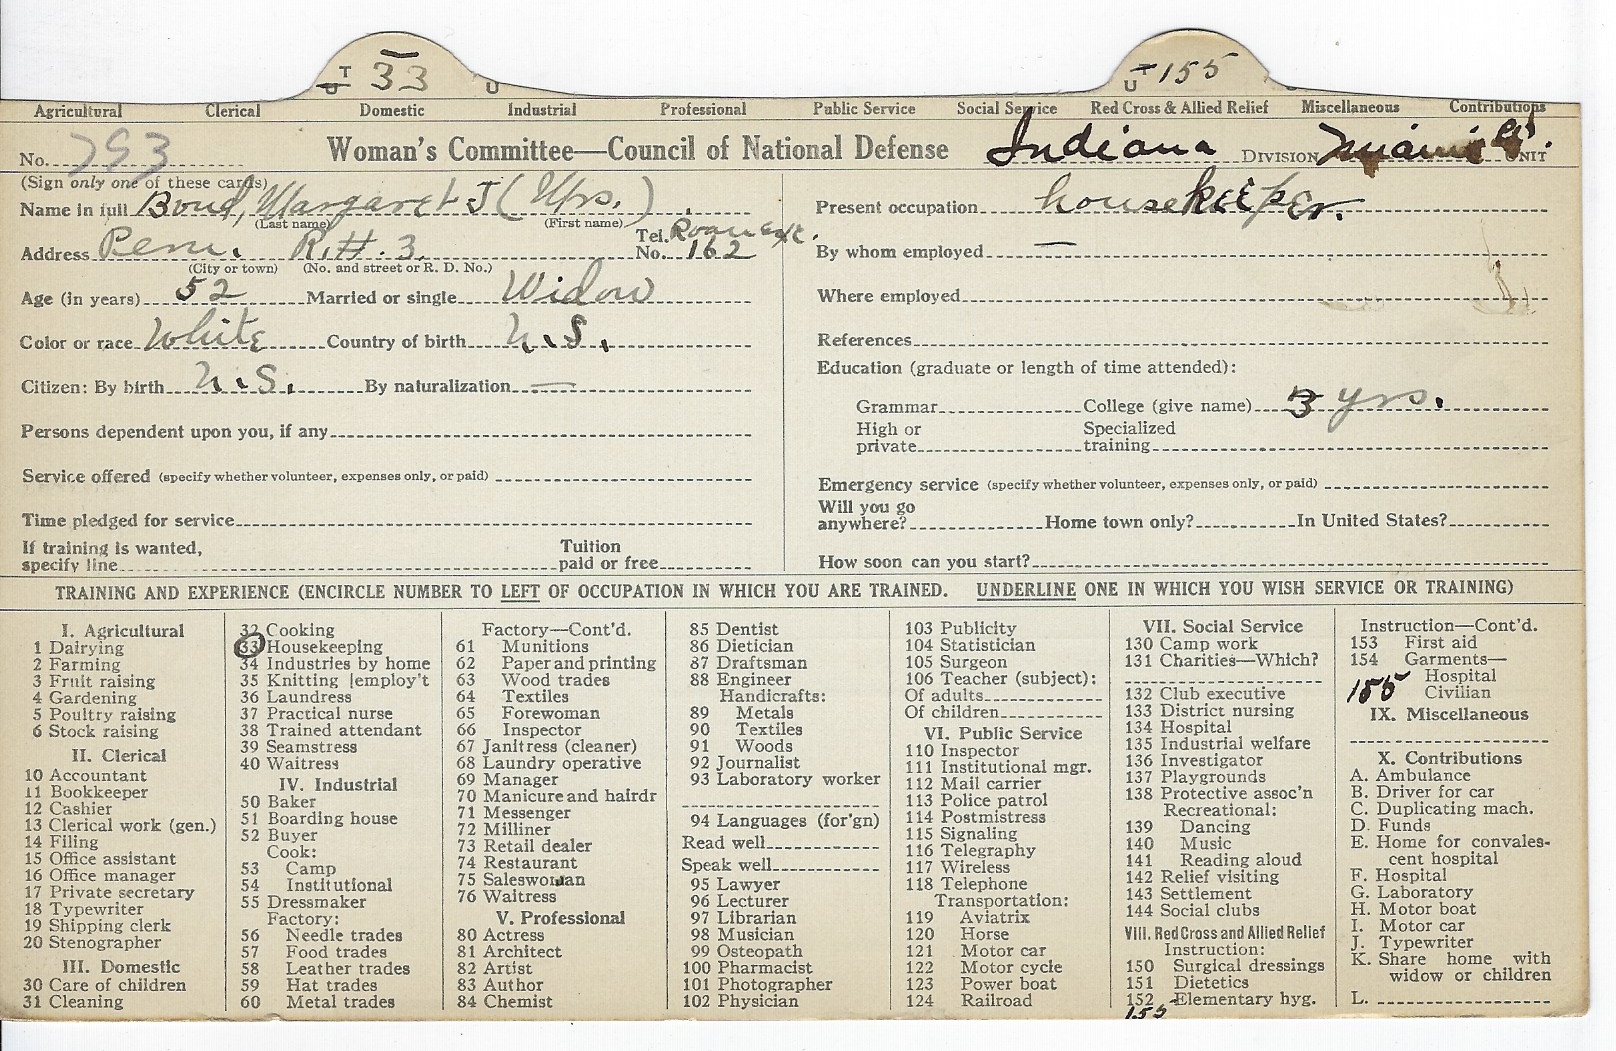 T
U 33 U
T
U 155
Agricultural Clerical Domestic Industrial Professional Public Service Social Service Red Cross & Allied Relief Miscellaneous Contributions
No. 793 Woman's Committee—Council of National Defense Indiana DIVISION Miami Co. UNIT
(Sign only one of these cards)
Name in full Bond, Margaret J (Mrs.)
(Last name) (First name)
Address Peru. R.#.3. Tel. No. Roann ext. 162
(City or town) (No. and street or R. D. No.)
Age (in years) 52 Married or single Widow
Color or race White Country of birth U.S.
Citizen: By birth U.S. By naturalization —
Persons dependent upon you, if any
Service offered (specify whether volunteer, expenses only, or paid)
Time pledged for service
If training is wanted, specify line Tuition paid or free
Present occupation housekeeper.
By whom employed —
Where employed
References
Education (graduate or length of time attended):
Grammar College (give name) 3 yrs.
High or private Specialized training
Emergency service (specify whether volunteer, expenses only, or paid)
Will you go anywhere? Home town only? In United States?
How soon can you start?
TRAINING AND EXPERIENCE (ENCIRCLE NUMBER TO LEFT OF OCCUPATION IN WHICH YOU ARE TRAINED. UNDERLINE ONE IN WHICH YOU WISH SERVICE OR TRAINING)
I. Agricultural
1 Dairying
2 Farming
3 Fruit raising
4 Gardening
5 Poultry raising
6 Stock raising
II. Clerical
10 Accountant
11 Bookkeeper
12 Cashier
13 Clerical work (gen.)
14 Filing
15 Office assistant
16 Office manager
17 Private secretary
18 Typewriter
19 Shipping clerk
20 Stenographer
III. Domestic
30 Care of children
31 Cleaning
32 Cooking
33 Housekeeping
34 Industries by home
35 Knitting [employ't
36 Laundress
37 Practical nurse
38 Trained attendant
39 Seamstress
40 Waitress
IV. Industrial
50 Baker
51 Boarding house
52 Buyer
Cook:
53 Camp
54 Institutional
55 Dressmaker
Factory:
56 Needle trades
57 Food trades
58 Leather trades
59 Hat trades
60 Metal trades
Factory—Cont'd.
61 Munitions
62 Paper and printing
63 Wood trades
64 Textiles
65 Forewoman
66 Inspector
67 Janitress (cleaner)
68 Laundry operative
69 Manager
70 Manicure and hairdr
71 Messenger
72 Milliner
73 Retail dealer
74 Restaurant
75 Saleswoman
76 Waitress
V. Professional
80 Actress
81 Architect
82 Artist
83 Author
84 Chemist
85 Dentist
86 Dietician
87 Draftsman
88 Engineer
Handicrafts:
89 Metals
90 Textiles
91 Woods
92 Journalist
93 Laboratory worker
94 Languages (for'gn)
Read well
Speak well
95 Lawyer
96 Lecturer
97 Librarian
98 Musician
99 Osteopath
100 Pharmacist
101 Photographer
102 Physician
103 Publicity
104 Statistician
105 Surgeon
106 Teacher (subject):
Of adults
Of children
VI. Public Service
110 Inspector
111 Institutional mgr.
112 Mail carrier
113 Police patrol
114 Postmistress
115 Signaling
116 Telegraphy
117 Wireless
118 Telephone
Transportation:
119 Aviatrix
120 Horse
121 Motor car
122 Motor cycle
123 Power boat
124 Railroad
VII. Social Service
130 Camp work
131 Charities—Which?
132 Club executive
133 District nursing
134 Hospital
135 Industrial welfare
136 Investigator
137 Playgrounds
138 Protective assoc'n
Recreational:
139 Dancing
140 Music
141 Reading aloud
142 Relief visiting
143 Settlement
144 Social clubs
VIII. Red Cross and Allied Relief
Instruction:
150 Surgical dressings
151 Dietetics
152 Elementary hyg.
155
Instruction—Cont'd.
153 First aid
154 Garments—
Hospital
155 Civilian
IX. Miscellaneous
X. Contributions
A. Ambulance
B. Driver for car
C. Duplicating mach.
D. Funds
E. Home for convales-
cent hospital
F. Hospital
G. Laboratory
H. Motor boat
I. Motor car
J. Typewriter
K. Share home with
widow or children
L.